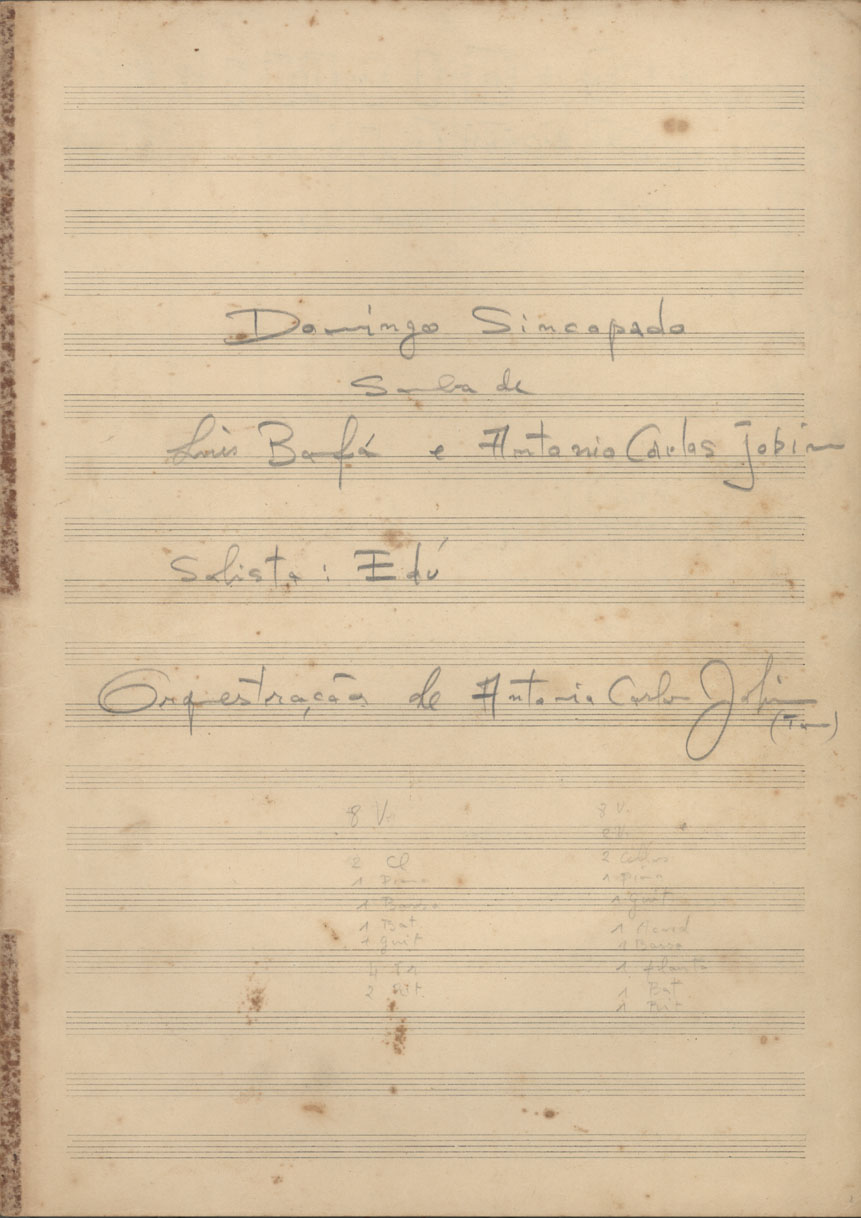 Domingo Sincopado
Samba de
Luis Bonfá e Antonio Carlos Jobim
Solista: Edú
Orquestração de Antonio Carlos Jobim
(Tom)
8 Vn
2 Cl
1 Piano
1 Basso
1 Bat
1 Guit
2 Rit
8 V.
2 Cellos
1 piano
1 Guit
1 Basso
1 flauta
1 Bat
1 Rit